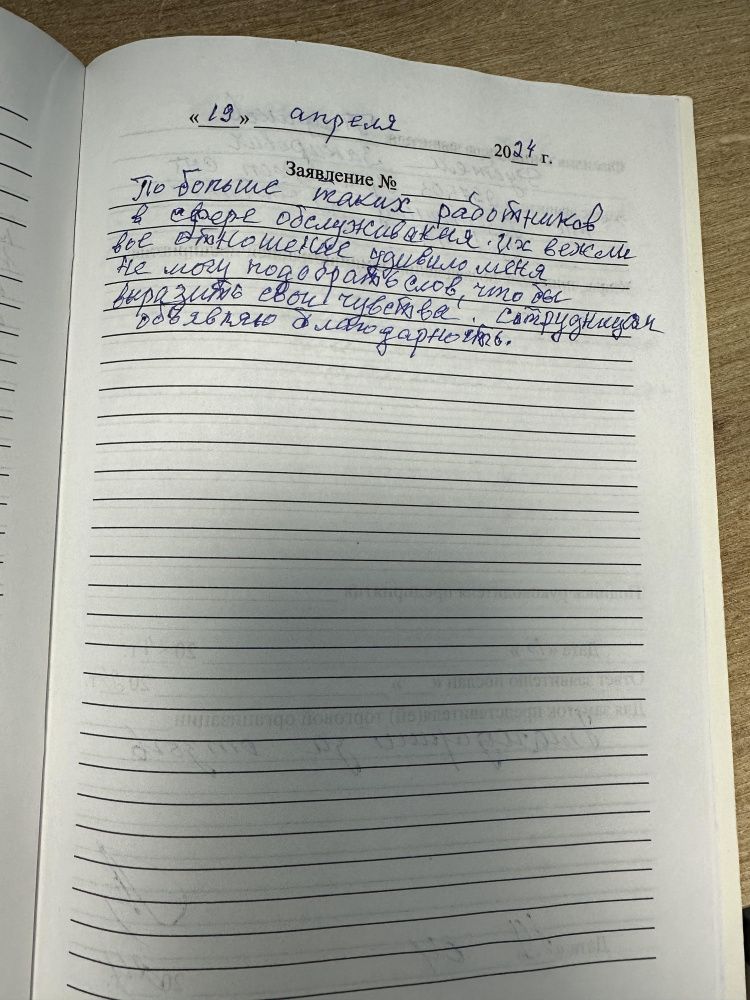 « 19 » апреля 2024 г.
Заявление №
Побольше таких работников
в сфере обслуживания. Их вежли
вое отношение удивило меня
Не могу подобрать слов, что бы
выразить свои чувства. Сотрудницам
объявляю благодарность.